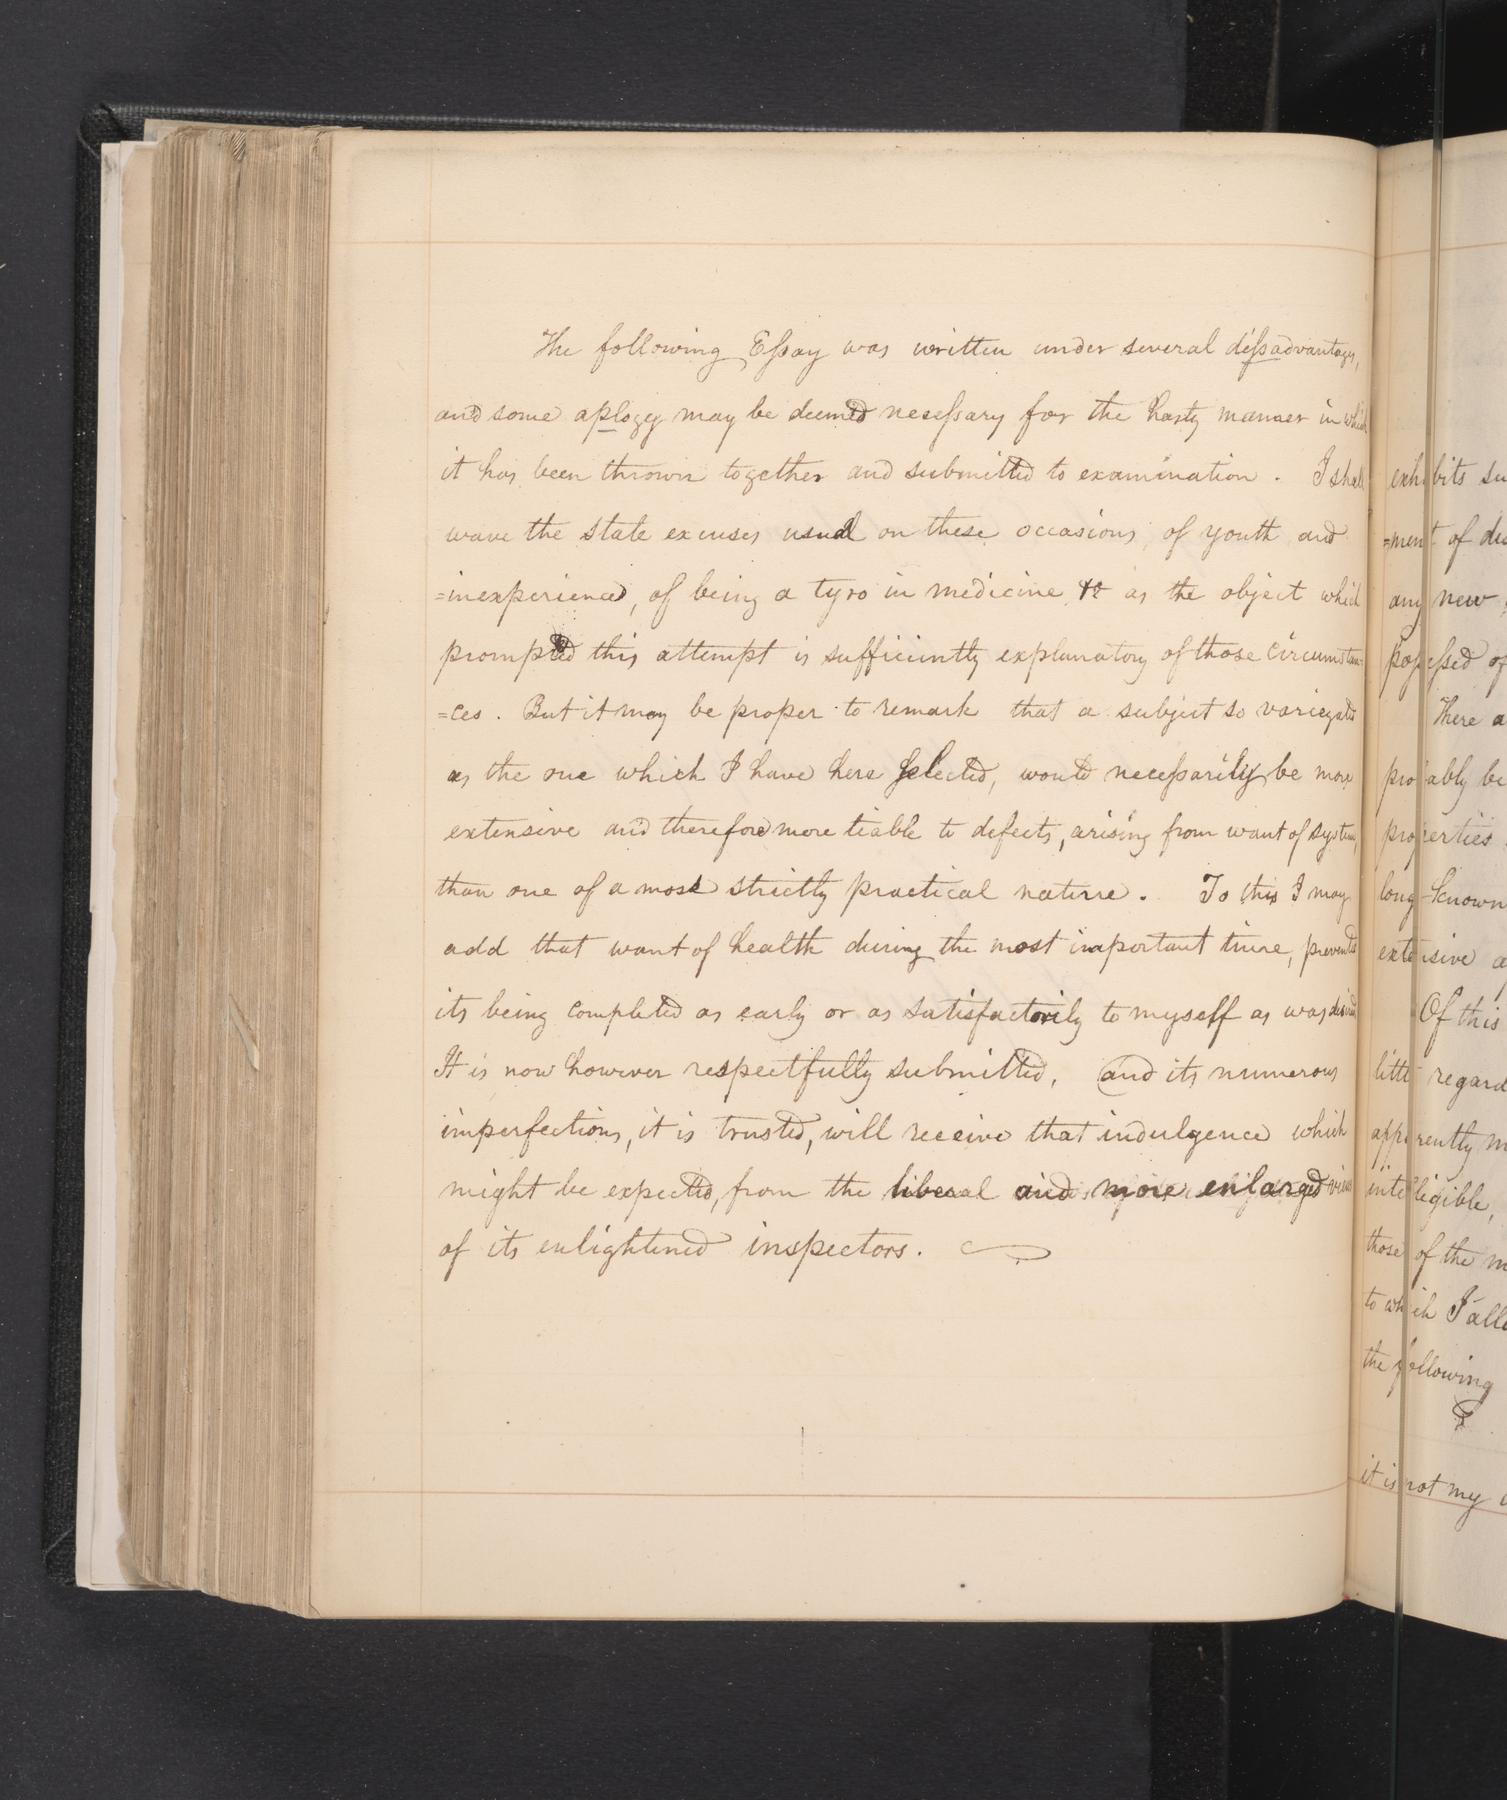 The following Essay was written under several dissadvantages,
and some aplogy may be deemed necessary for the hasty manner in which
it has been thrown together and submitted to examination. I shall
wave the stale excuses usual on these occasions of youth and
=inexperience, of being a tyro in medicine &c as the object which
prompted this attempt is sufficiently explanatory of those circumstan=
=ces. But it may be proper to remark that a subject so variegated
as the one which I have here selected, would necessarily be more
extensive and therefore more liable to defects, arising from want of system,
than one of a most strictly practical nature. To this I may
add that want of health during the most important time, prevented
its being completed as early or as satisfactorily to myself as was desired
It is now however respectfully submitted, and its numerous
imperfections, it is trusted, will receive that indulgence which
might be expected, from the liberal and more enlarged views
of its enlightened inspectors.
exhibits su
=ment of dis
any new
possessed of
There a
probably be
properties
long known
extensive a
Of this
little regard
apparently m
intelligible,
those of the m
to which I allu
the following
it is not my